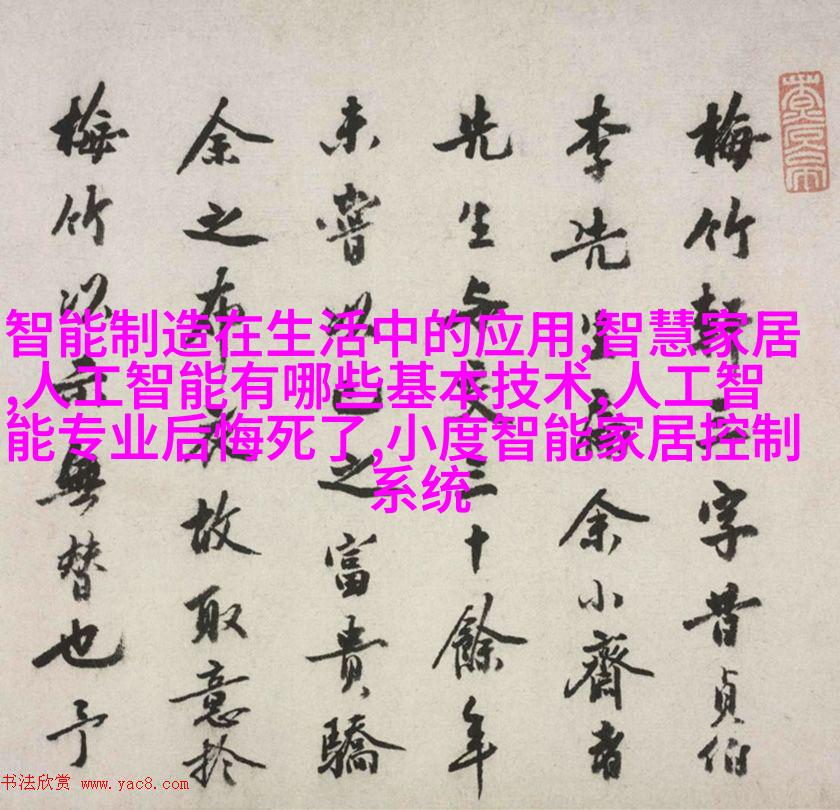 智能制造在生活中的应用,智慧家居
,人工智能有哪些基本技术,人工智
能专业后悔死了,小度智能家居控制
系统
梅竹軒字昔貞伯
李先生余小齋
先生与交三十餘年
未嘗以之富貴驕
余之布故取意於
梅竹以無替也予
书法欣赏 www.yac8.com